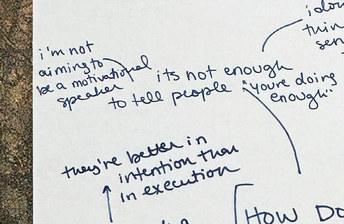 i do
thin
sen
i'm not
aiming to
be a motivational
speaker
its not enough
to tell people "you're doing
enough"
they're better in
intention than
in execution
HOW DO